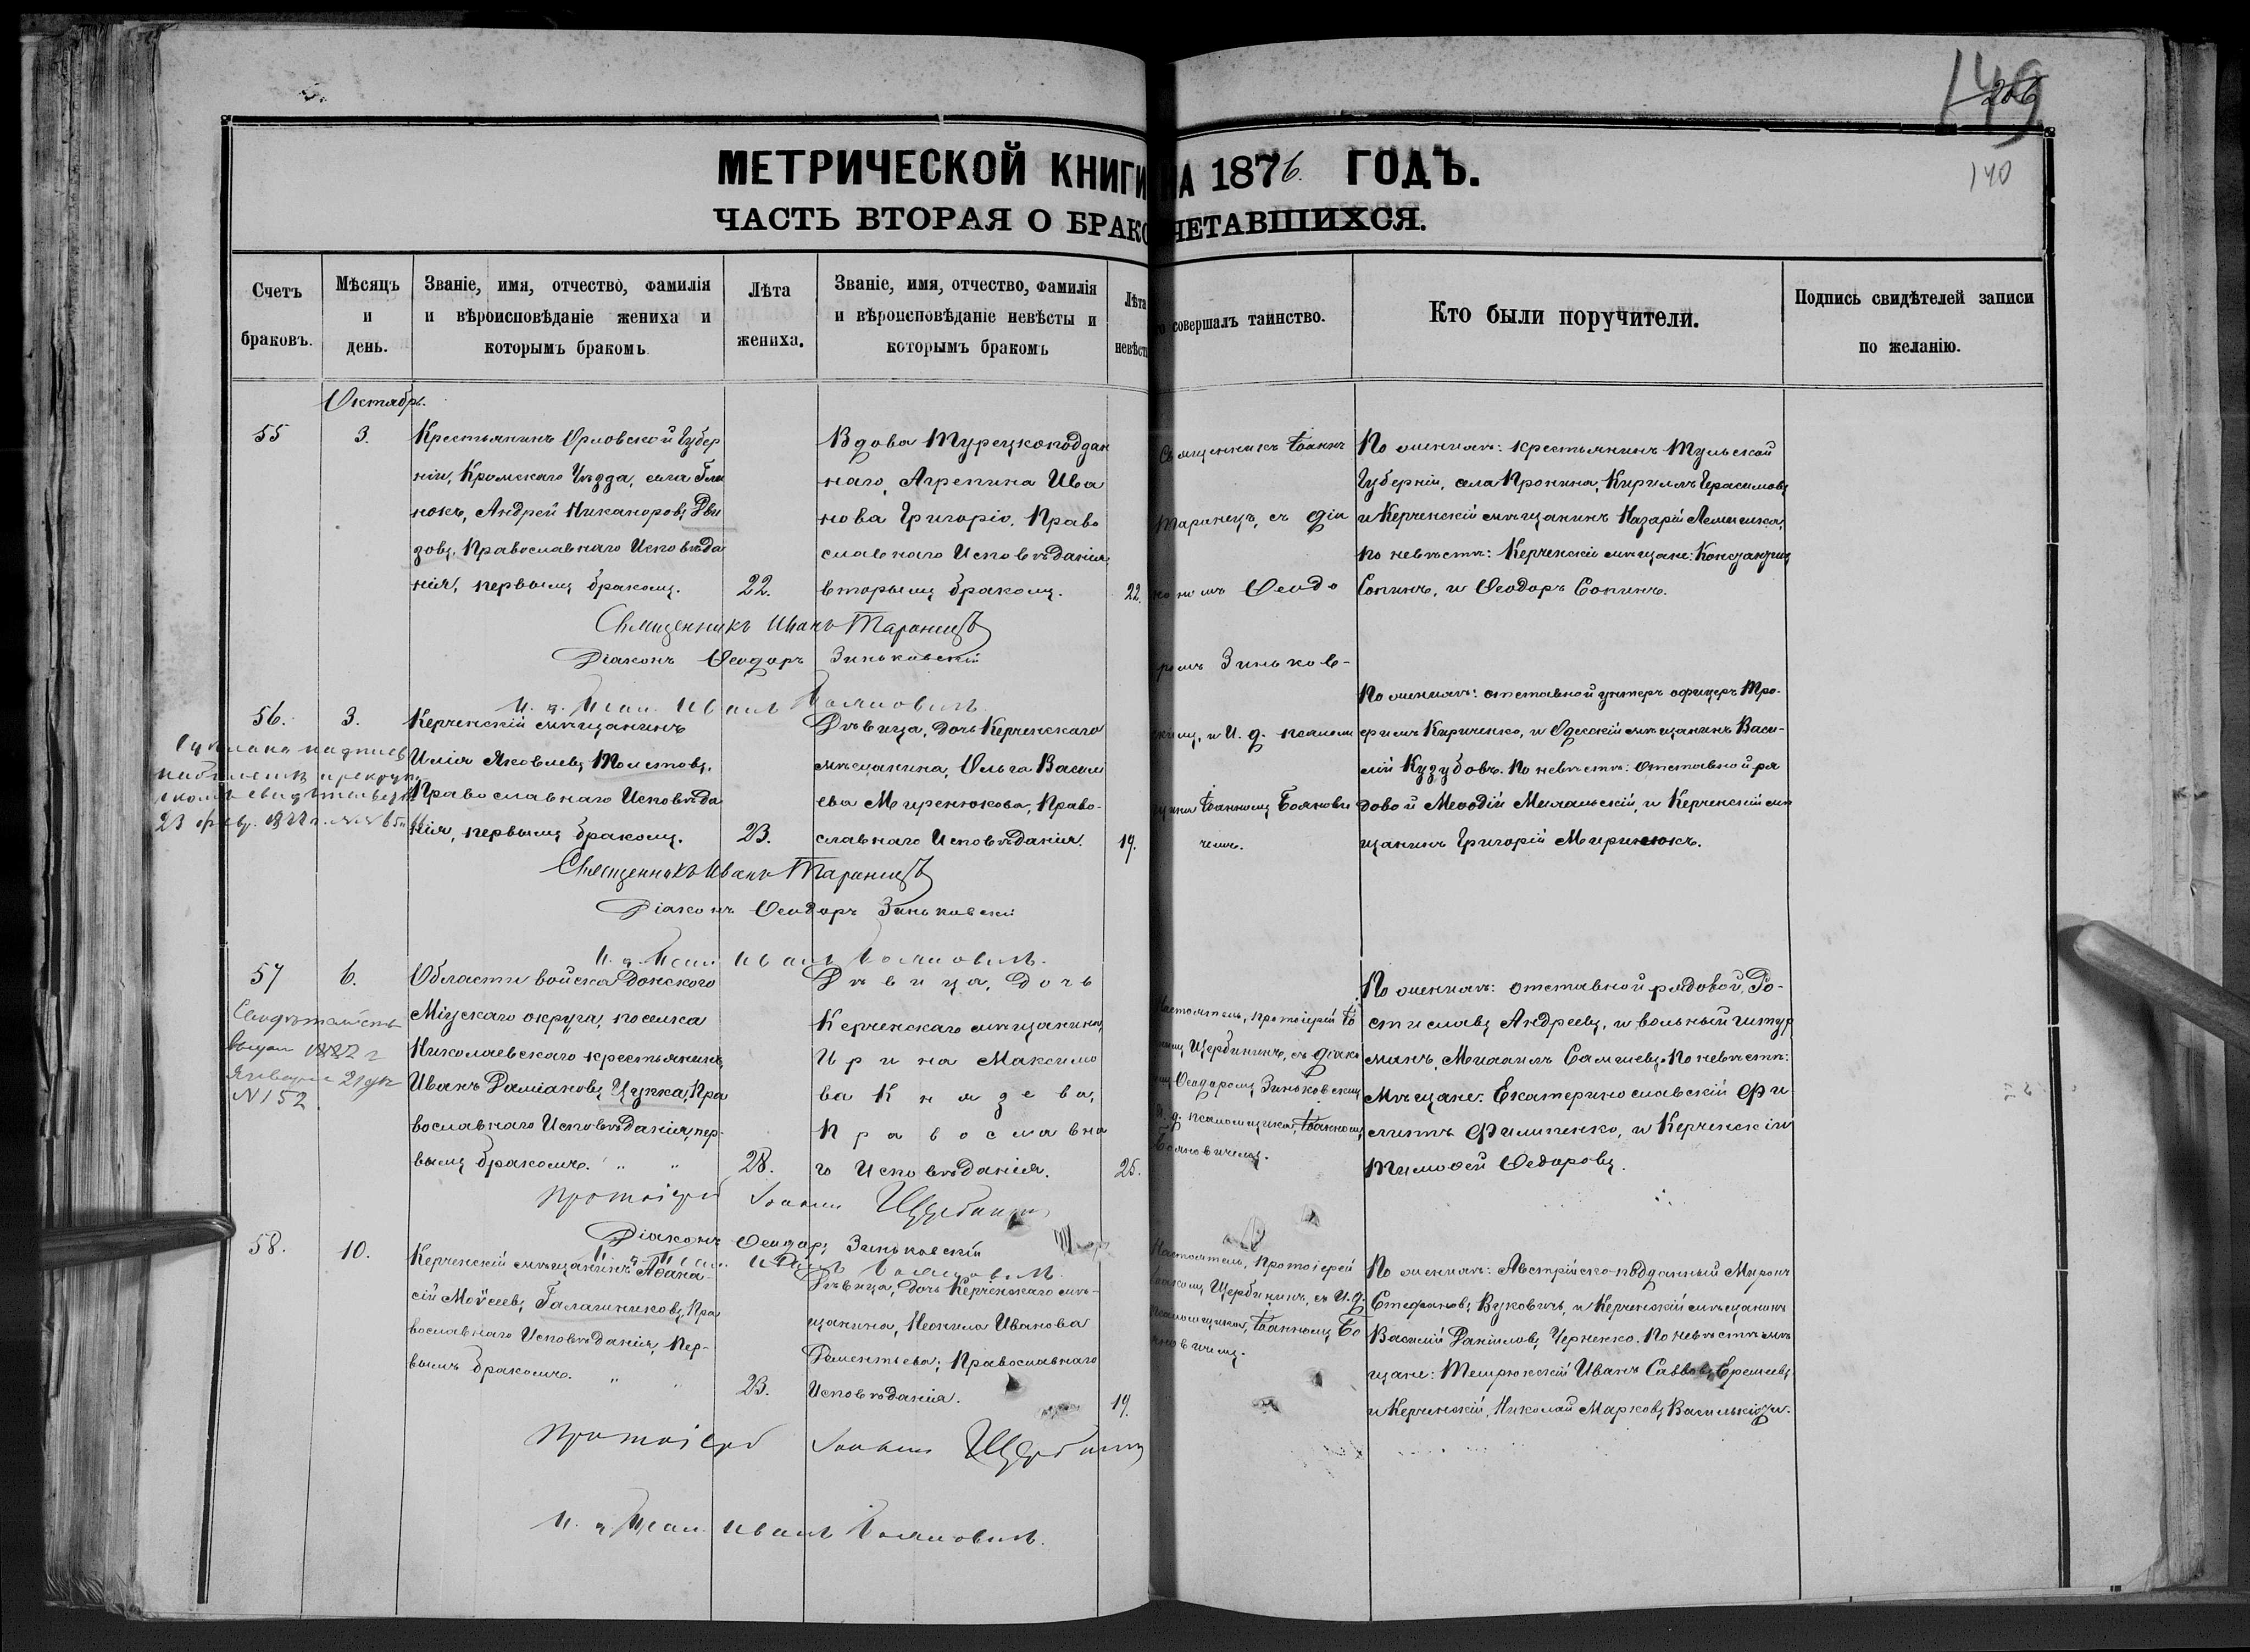 149
206
140
МЕТРИЧЕСКОЙ КНИГИ НА 1876. ГОДЪ.
ЧАСТЬ ВТОРАЯ О БРАКО ЧЕТАВШИХСЯ.
Счетъ
браковъ.
Мѣсяцъ
и
день.
Званіе, имя, отчество, фамилія
и вѣроисповѣданіе жениха и
которымъ бракомъ
Лѣта
жениха.
Званіе, имя, отчество, фамилія
и вѣроисповѣданіе невѣсты и
которымъ бракомъ
Лѣта
невѣст
совершалъ таинство.
Кто были поручители.
Подпись свидѣтелей записи
по желанію.
Октябрь.
55
3.
Крестьянинъ Орловской Губер
ніи, Кромскаго Уѣзда, села Гла
Андрей Никаноровъ
Православнаго Исповѣда
нія, первымъ бракомъ.
22.
Вдова Турецкоподдан
наго, Агрепина Ива
нова Григоріо, Право
славнаго Исповѣданія
вторымъ бракомъ.
22.
Священникъ Іоаннъ
Таранецъ, съ діа
кономъ Ѳеодо
ромъ Зиньков-
скимъ, и И. д. псаломщ
Іоанномъ Боянови
чемъ.
По женихѣ: крестьянинъ Тульской
Губерніи, села Пронина, Кириллъ Герасимовъ
и Керченскій мѣщанинъ Назарій
по невѣстѣ: Керченскіе мѣщане: Констандинъ
Сопинъ, и Ѳеодоръ Сопинъ.
Священникъ Иванъ Таранецъ
Діаконъ Ѳеодоръ Зиньковскій
И. д. Псал. Иванъ Бояновичъ
56.
3.
23 февр.
Керченскій мѣщанинъ
Илія Яковлевъ Толстовъ,
Православнаго Исповѣда
нія, первымъ бракомъ.
23.
Дѣвица, дочь Керченскаго
мѣщанина, Ольга Васил
ева Миренюкова, Право-
славнаго Исповѣданія.
19.
По женихѣ: отставной унтеръ офицеръ Тро-
фимъ Кириченко, и Одесскій мѣщанинъ Васи-
лій Кузубовъ. По невѣстѣ: Отставной ря
довой Меѳодій и Керченскій мѣ
щанинъ Григорій Миринюкъ.
Священникъ Иванъ Таранецъ
Діаконъ Ѳеодоръ Зиньковскій
И. д. Псал. Иванъ Бояновичъ.
57
6.
Января 21 дня
N 152
Области войска Донского
Міускаго округа, поселка
Николаевскаго крестьянинъ,
Иванъ Даміановъ Цупка, Пра
вославнаго Исповѣданія, пер-
вымъ бракомъ. " "
28.
Дѣвица, дочь
Керченскаго мѣщанина,
Ирина Максимо
ва Князева,
Православна
го Исповѣданія.
25.
Настоятель, протоіерей Іо
Щербининъ, съ діако
Ѳеодоромъ Зиньковскимъ
И. д. псаломщика, Іоанномъ
Бояновичемъ.
По женихѣ: отставной рядовой, Ро-
стиславъ Андреевъ, и вольный штур
манъ, Михаилъ По невѣстѣ:
Мѣщане: Екатеринославскій Фи
липъ Филипенко, и Керченскій
Тимоѳей Ѳедоровъ.
Протоіерей Іоаннъ Щербининъ
Діаконъ Ѳеодоръ Зиньковскій
И. д. Псал. Иванъ Бояновичъ
58.
10.
Керченскій мѣщанинъ Аѳана-
сій Моѵсеевъ Галагинниковъ, Пра
вославнаго Исповѣданія, пер-
вымъ бракомъ. " "
23.
Дѣвица, дочь Керченскаго мѣ-
щанина, Неонила Иванова
Дементьева, Православнаго
Исповѣданія.
19.
Настоятель, Протоіерей
Іоаннъ Щербининъ, съ И. д.
псаломщика, Іоанномъ Бо
яновичемъ.
По женихѣ: Австрійско-подданный Миронъ
Стефановъ Вуковичъ, и Керченскій мѣщанинъ
Василій Даніиловъ Черненко. По невѣстѣ мѣ
щане: Темрюкскій Иванъ Саввовъ
и Керченскій, Николай Марковъ
Протоіерей Іоаннъ Щербининъ
И. д. Псал. Иванъ Бояновичъ.